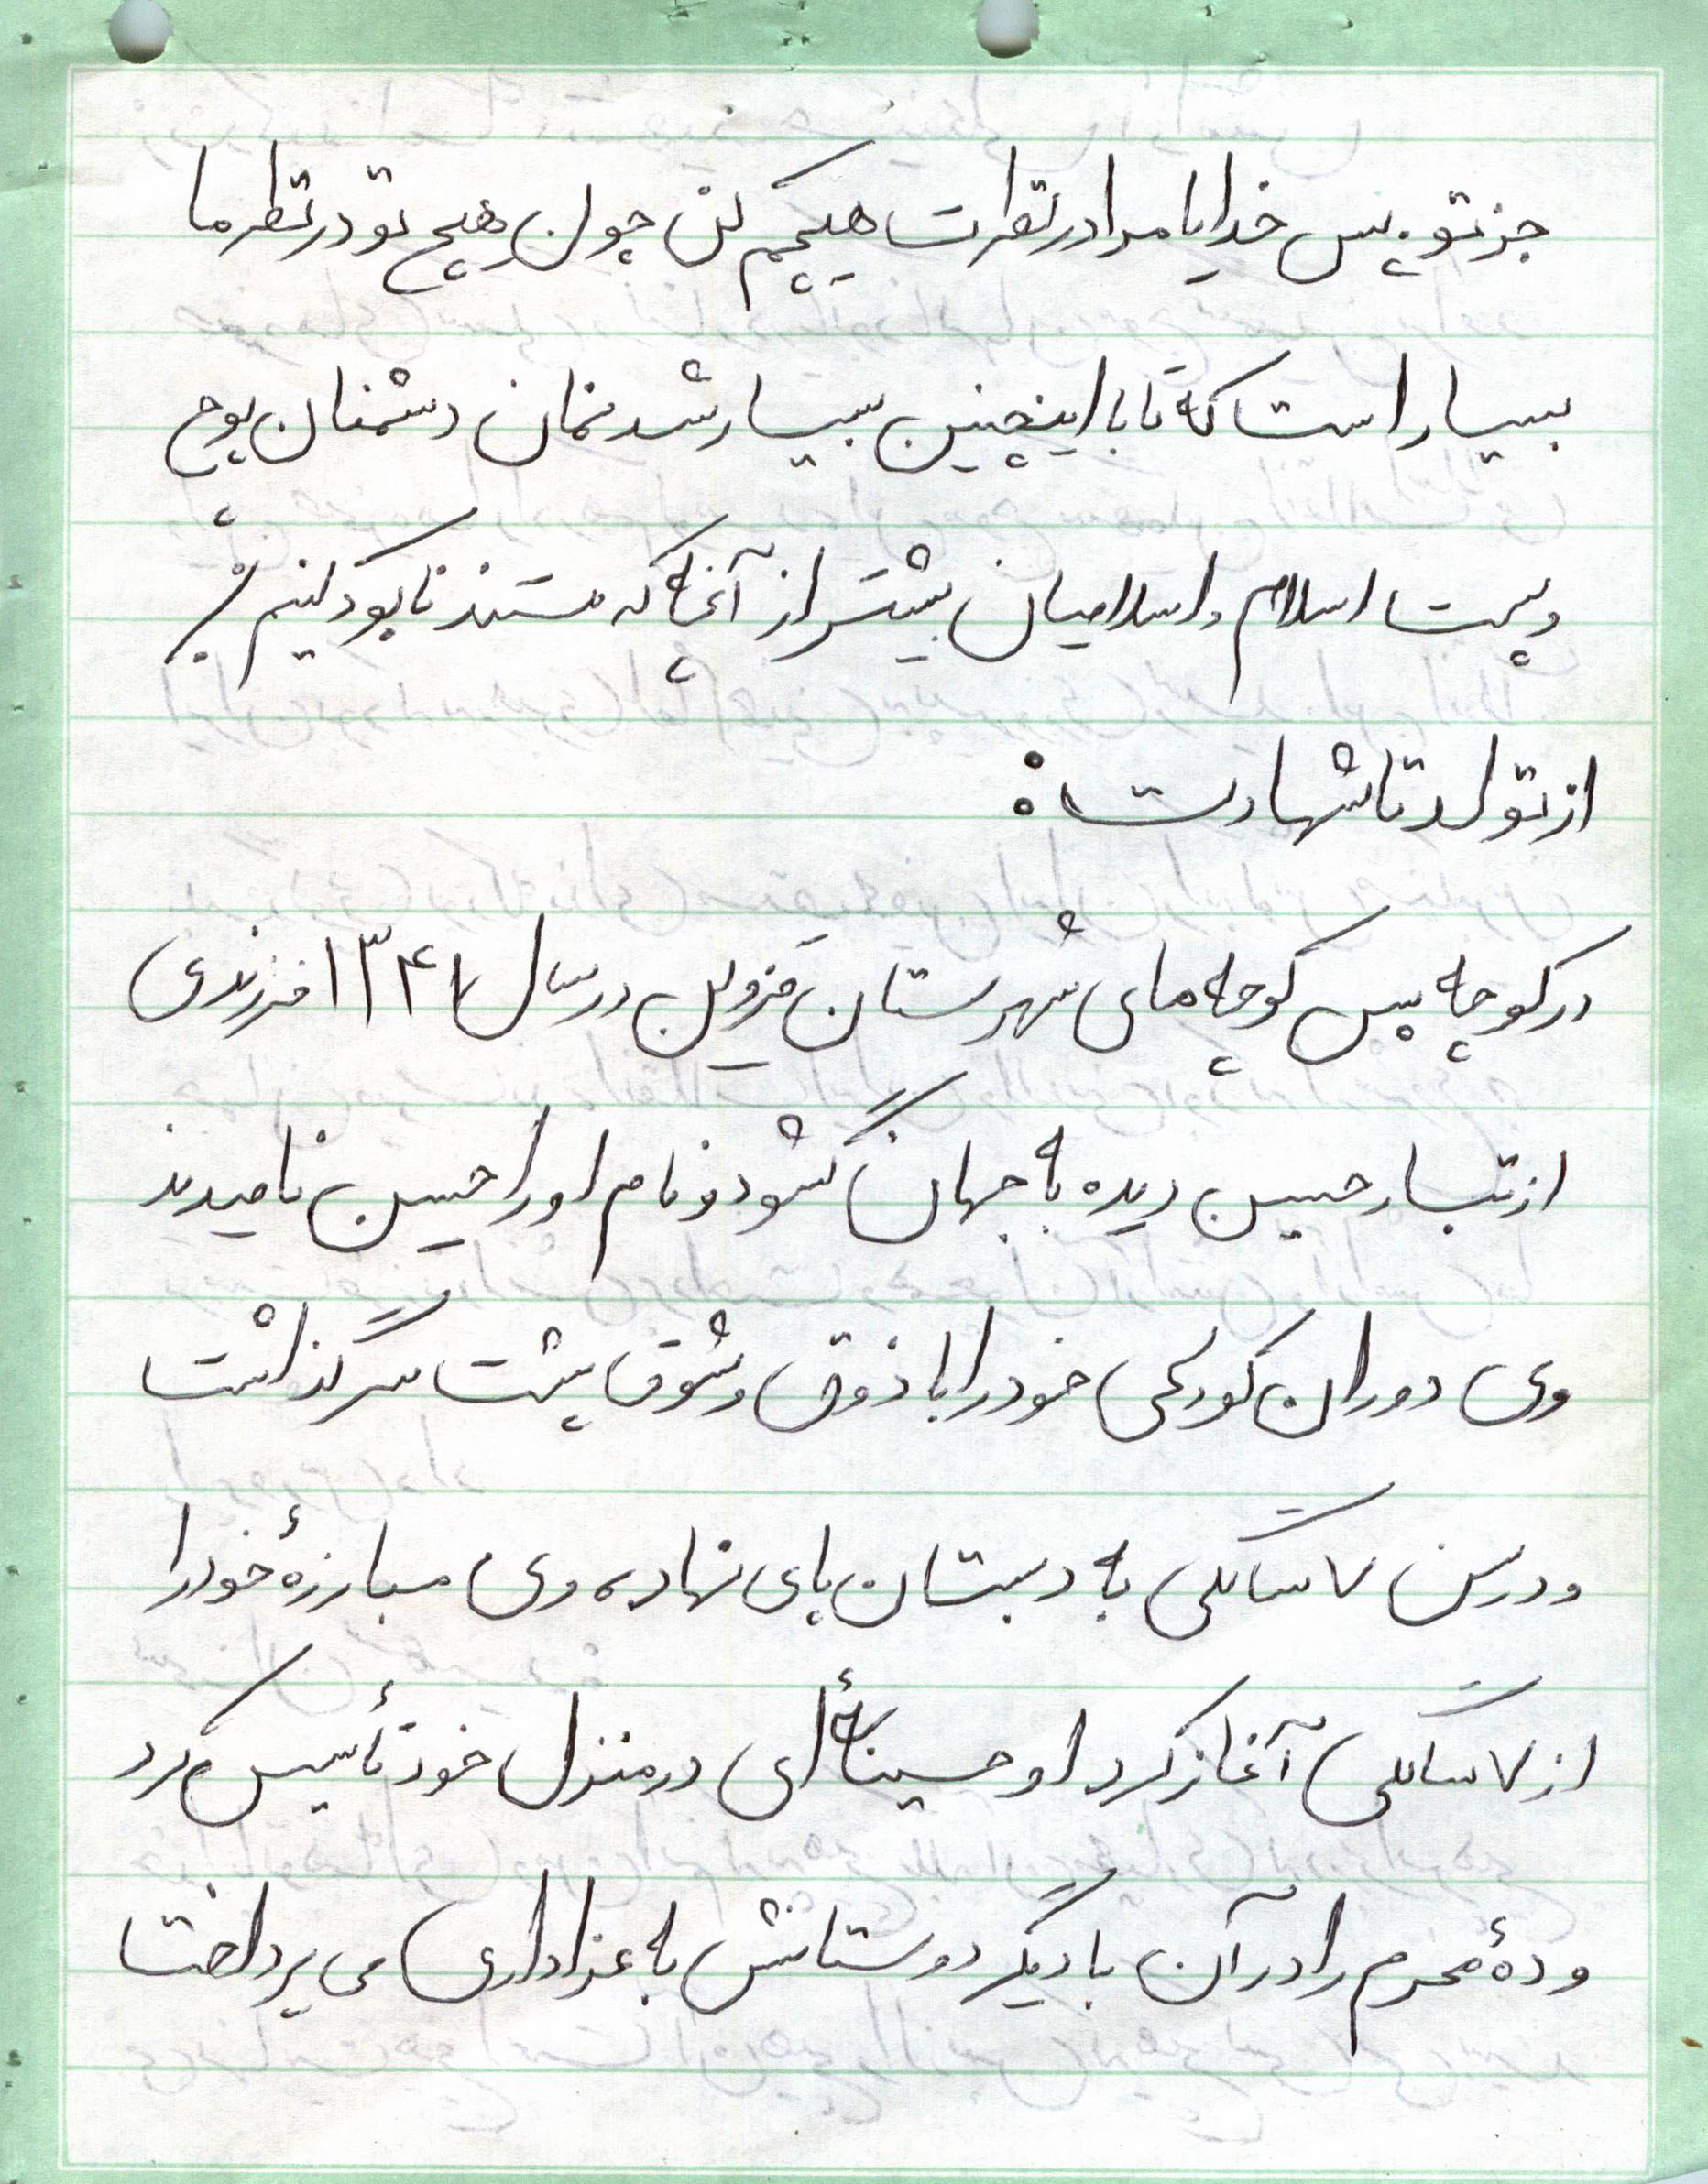 جز تو. پس خدایا مرا در نظرت هیچم کن چون هیچ تو در نظر ما
بسیار است که تا با اینچنین بسیار شدنمان دشمنان پوچ
و پست اسلام و اسلامیان بیشتر از آنچه که هستند نابود کنیم.
از تولد تا شهادت:
در کوچه پس کوچه های شهرستان قزوین در سال ۱۳۴۱ فرزندی
از تبار حسین دیده به جهان گشود و نام او را حسین نامیدند
وی دوران کودکی خود را با ذوق و شوق پشت سر گذاشت
و در سن ۷ سالگی به دبستان پای نهاد، وی مبارزهٔ خود را
از ۷ سالگی آغاز کرد او حسینیهٔ ای در منزل خود تأسیس کرد
و دههٔ محرم را در آن با دیگر دوستانش به عزاداری می پرداخت